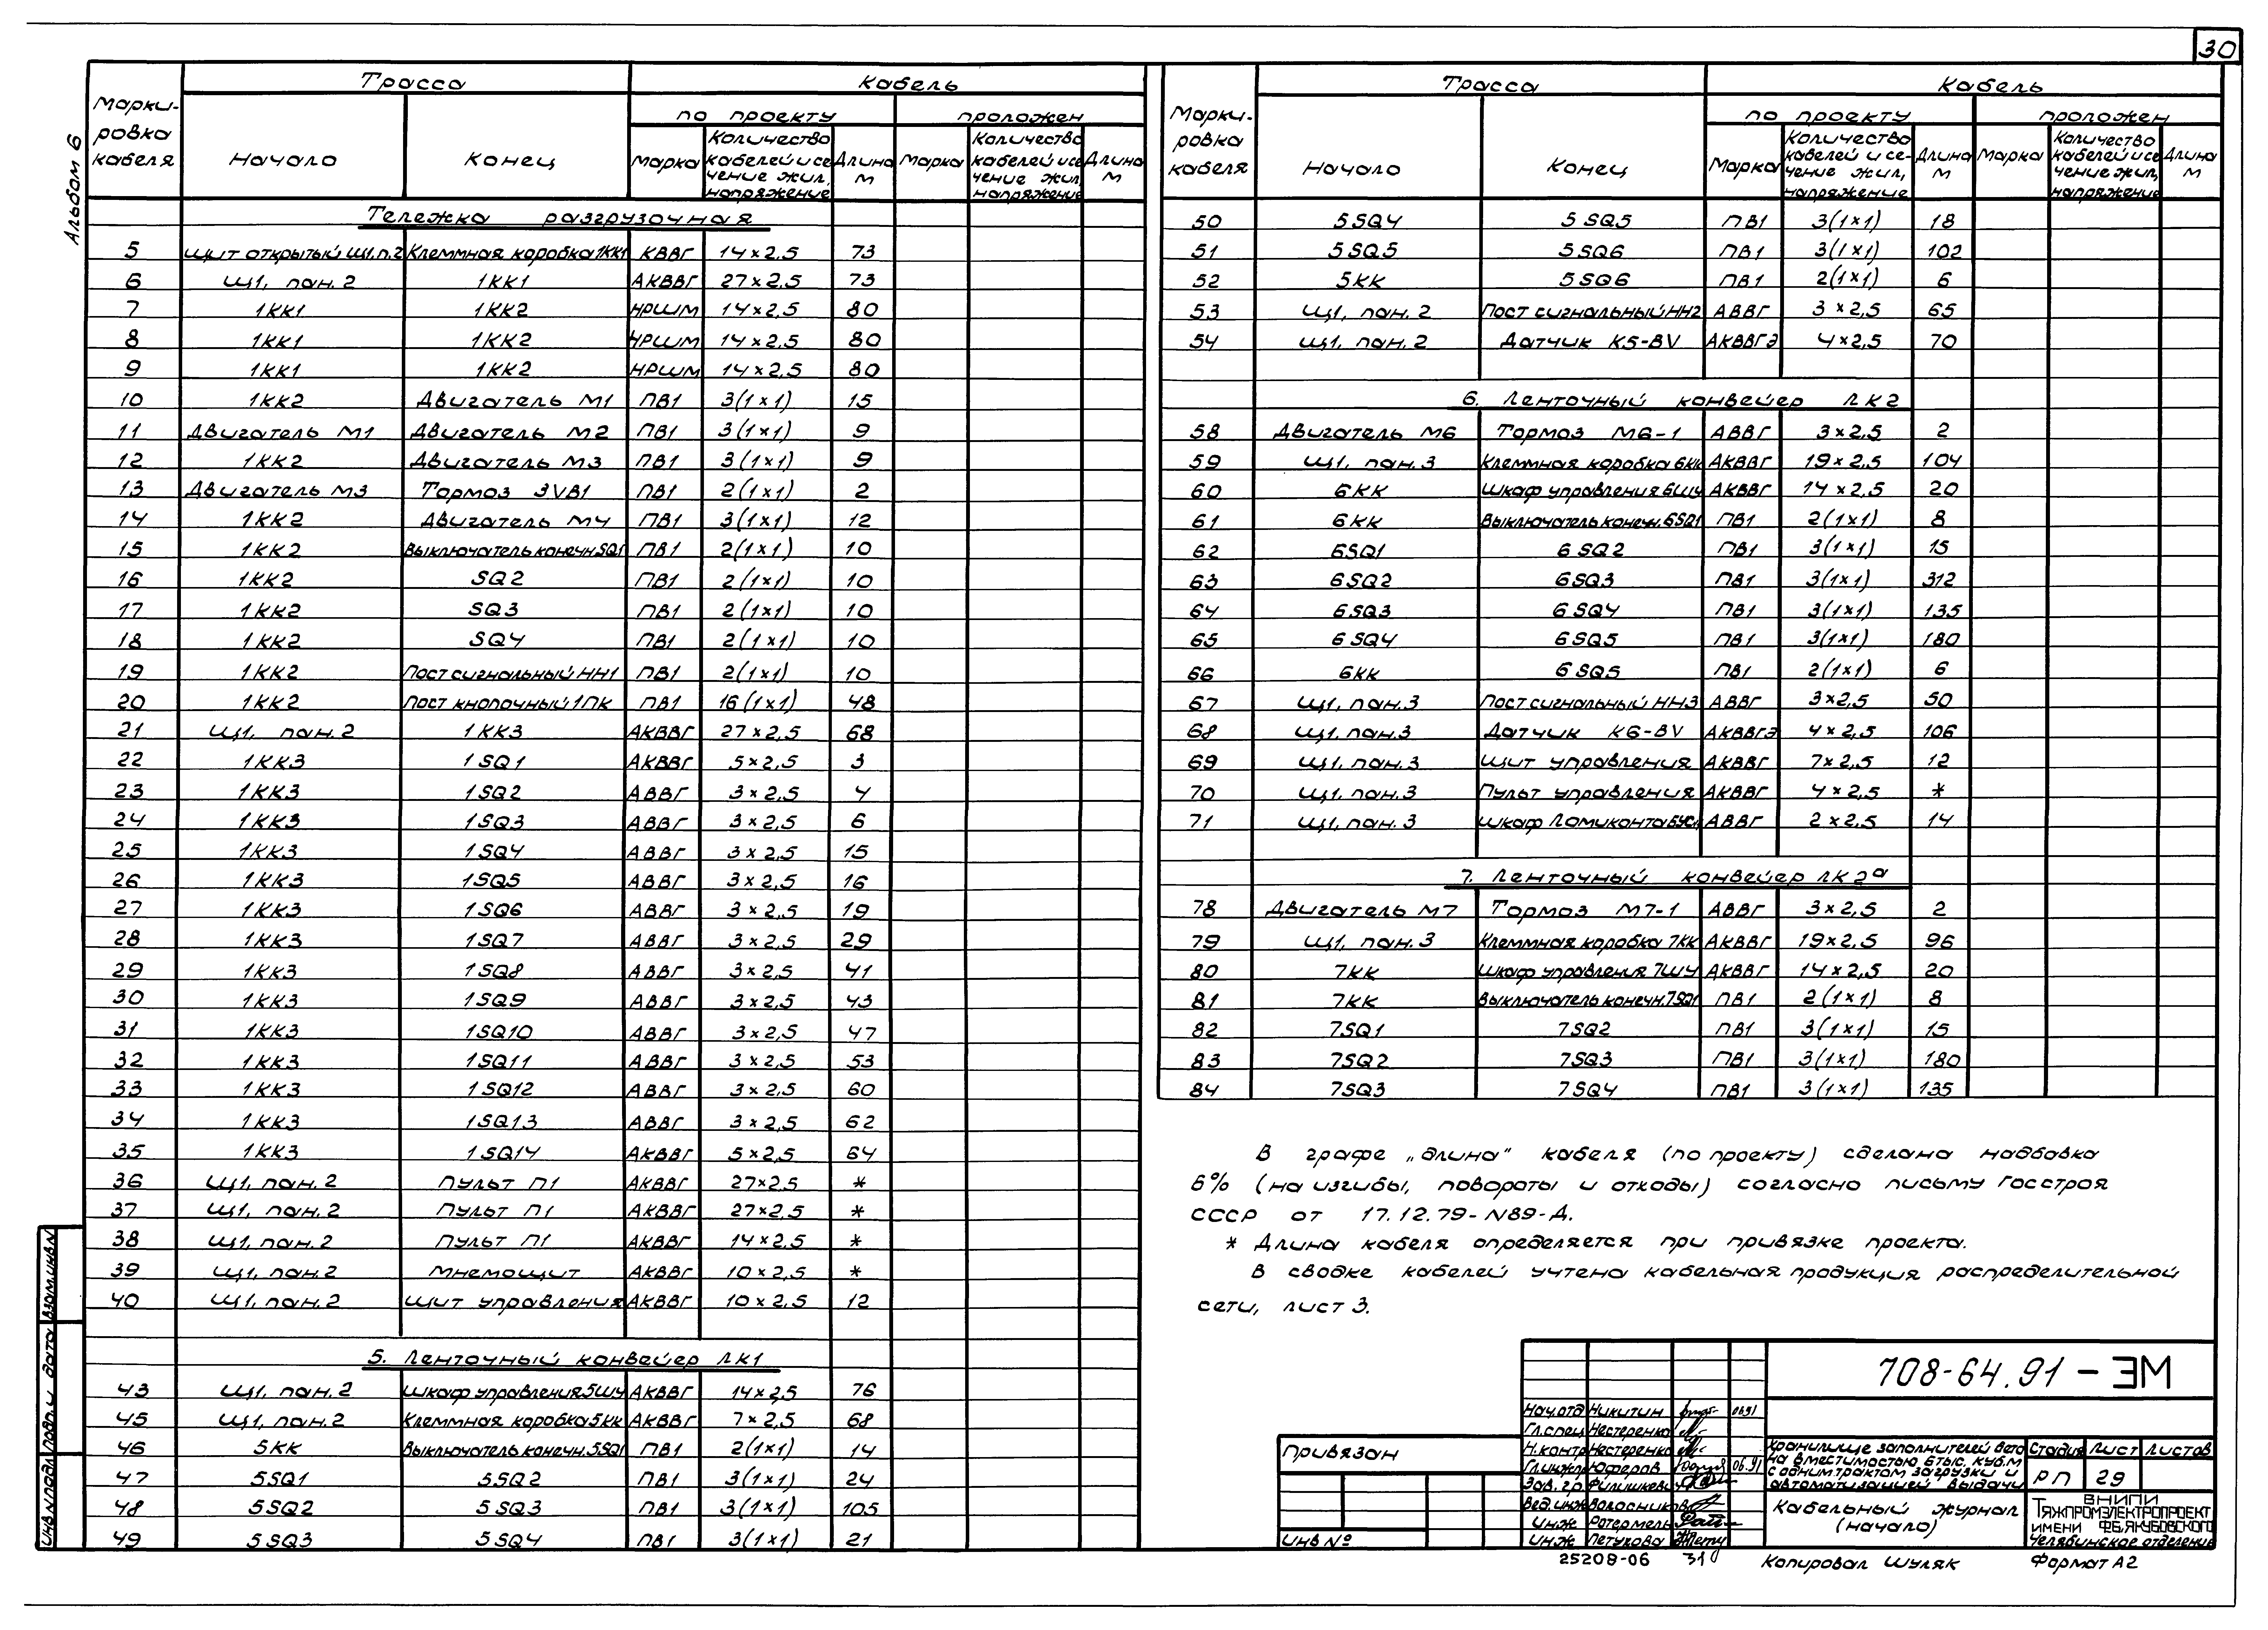 30
Альбом 6
Марки-ровка кабеля | Трасса | Кабель
по проекту | проложен
Начало | Конец | Марка | Количество кабелей и сечение жил, напряжение | Длина м | Марка | Количество кабелей и сечение жил, напряжение | Длина м
Тележка разгрузочная
5 Щит открытый Щ1, п.2 Клеммная коробка 1КК1 КВВГ 14×2,5 73
6 Щ1, пан. 2 1КК1 АКВВГ 27×2,5 73
7 1КК1 1КК2 НРШМ 14×2,5 80
8 1КК1 1КК2 НРШМ 14×2,5 80
9 1КК1 1КК2 НРШМ 14×2,5 80
10 1КК2 Двигатель М1 ПВ1 3(1×1) 15
11 Двигатель М1 Двигатель М2 ПВ1 3(1×1) 9
12 1КК2 Двигатель М3 ПВ1 3(1×1) 9
13 Двигатель М3 Тормоз 3УВ1 ПВ1 2(1×1) 2
14 1КК2 Двигатель М4 ПВ1 3(1×1) 12
15 1КК2 Выключатель конечн. SQ1 ПВ1 2(1×1) 10
16 1КК2 SQ2 ПВ1 2(1×1) 10
17 1КК2 SQ3 ПВ1 2(1×1) 10
18 1КК2 SQ4 ПВ1 2(1×1) 10
19 1КК2 Пост сигнальный НН1 ПВ1 2(1×1) 10
20 1КК2 Пост кнопочный 1ПК ПВ1 16(1×1) 48
21 Щ1, пан. 2 1КК3 АКВВГ 27×2,5 68
22 1КК3 1SQ1 АКВВГ 5×2,5 3
23 1КК3 1SQ2 АВВГ 3×2,5 4
24 1КК3 1SQ3 АВВГ 3×2,5 6
25 1КК3 1SQ4 АВВГ 3×2,5 15
26 1КК3 1SQ5 АВВГ 3×2,5 16
27 1КК3 1SQ6 АВВГ 3×2,5 19
28 1КК3 1SQ7 АВВГ 3×2,5 29
29 1КК3 1SQ8 АВВГ 3×2,5 41
30 1КК3 1SQ9 АВВГ 3×2,5 43
31 1КК3 1SQ10 АВВГ 3×2,5 47
32 1КК3 1SQ11 АВВГ 3×2,5 53
33 1КК3 1SQ12 АВВГ 3×2,5 60
34 1КК3 1SQ13 АВВГ 3×2,5 62
35 1КК3 1SQ14 АКВВГ 5×2,5 64
36 Щ1, пан. 2 Пульт П1 АКВВГ 27×2,5 *
37 Щ1, пан. 2 Пульт П1 АКВВГ 27×2,5 *
38 Щ1, пан. 2 Пульт П1 АКВВГ 14×2,5 *
39 Щ1, пан. 2 Мнемощит АКВВГ 10×2,5 *
40 Щ1, пан. 2 Щит управления АКВВГ 10×2,5 12
5. Ленточный конвейер ЛК1
43 Щ1, пан. 2 Шкаф управления 5ШУ АКВВГ 14×2,5 76
45 Щ1, пан. 2 Клеммная коробка 5КК АКВВГ 7×2,5 68
46 5КК Выключатель конечн. 5SQ1 ПВ1 2(1×1) 14
47 5SQ1 5SQ2 ПВ1 3(1×1) 24
48 5SQ2 5SQ3 ПВ1 3(1×1) 105
49 5SQ3 5SQ4 ПВ1 3(1×1) 21
Марки-ровка кабеля | Трасса | Кабель
по проекту | проложен
Начало | Конец | Марка | Количество кабелей и се-чение жил, напряжение | Длина м | Марка | Количество кабелей и сечение жил, напряжение | Длина м
50 5SQ4 5SQ5 ПВ1 3(1×1) 18
51 5SQ5 5SQ6 ПВ1 3(1×1) 102
52 5КК 5SQ6 ПВ1 2(1×1) 6
53 Щ1, пан. 2 Пост сигнальный НН2 АВВГ 3×2,5 65
54 Щ1, пан. 2 Датчик К5-BV АКВВГЭ 4×2,5 70
6. Ленточный конвейер ЛК2
58 Двигатель М6 Тормоз М6-1 АВВГ 3×2,5 2
59 Щ1, пан. 3 Клеммная коробка 6КК АКВВГ 19×2,5 104
60 6КК Шкаф управления 6ШУ АКВВГ 14×2,5 20
61 6КК Выключатель конечн. 6SQ1 ПВ1 2(1×1) 8
62 6SQ1 6SQ2 ПВ1 3(1×1) 15
63 6SQ2 6SQ3 ПВ1 3(1×1) 312
64 6SQ3 6SQ4 ПВ1 3(1×1) 135
65 6SQ4 6SQ5 ПВ1 3(1×1) 180
66 6КК 6SQ5 ПВ1 2(1×1) 6
67 Щ1, пан. 3 Пост сигнальный НН3 АВВГ 3×2,5 50
68 Щ1, пан. 3 Датчик К6-BV АКВВГЭ 4×2,5 106
69 Щ1, пан. 3 Щит управления АКВВГ 7×2,5 12
70 Щ1, пан. 3 Пульт управления АКВВГ 4×2,5 *
71 Щ1, пан. 3 Шкаф Ломиконта АВВГ 2×2,5 14
7. Ленточный конвейер ЛК2ª
78 Двигатель М7 Тормоз М7-1 АВВГ 3×2,5 2
79 Щ1, пан. 3 Клеммная коробка 7КК АКВВГ 19×2,5 96
80 7КК Шкаф управления 7ШУ АКВВГ 14×2,5 20
81 7КК Выключатель конечн. 7SQ1 ПВ1 2(1×1) 8
82 7SQ1 7SQ2 ПВ1 3(1×1) 15
83 7SQ2 7SQ3 ПВ1 3(1×1) 180
84 7SQ3 7SQ4 ПВ1 3(1×1) 135
В графе „длина" кабеля (по проекту) сделана надбавка
6% (на изгибы, повороты и отходы) согласно письму Госстроя
СССР от 17.12.79-N89-Д.
* Длина кабеля определяется при привязке проекта.
В сводке кабелей учтена кабельная продукция распределительной
сети, лист 3.
708-64.91-ЭМ
Нач.отд Никитин 0691
Гл.спец Нестеренко
Н.контр Нестеренко
Гл.инж.пр Юферов 06.91
Зав.гр. Филишкевич
Вед.инж Волосников
Инж Ротермель
Инж Петухова
Привязан
Инв №
Хранилище заполнителей бето
на вместимостью 6 тыс. куб.м
с одним трактом загрузки и
автоматизацией выдачи
Стадия Лист Листов
РП 29
Кабельный журнал
(начало)
ВНИПИ
Тяжпромэлектропроект
имени Ф.Б.Якубовского
Челябинское отделение
25208-06 31
Копировал Шуляк
Формат А2
Инв.N подл. Подп. и дата Взам.инв.N